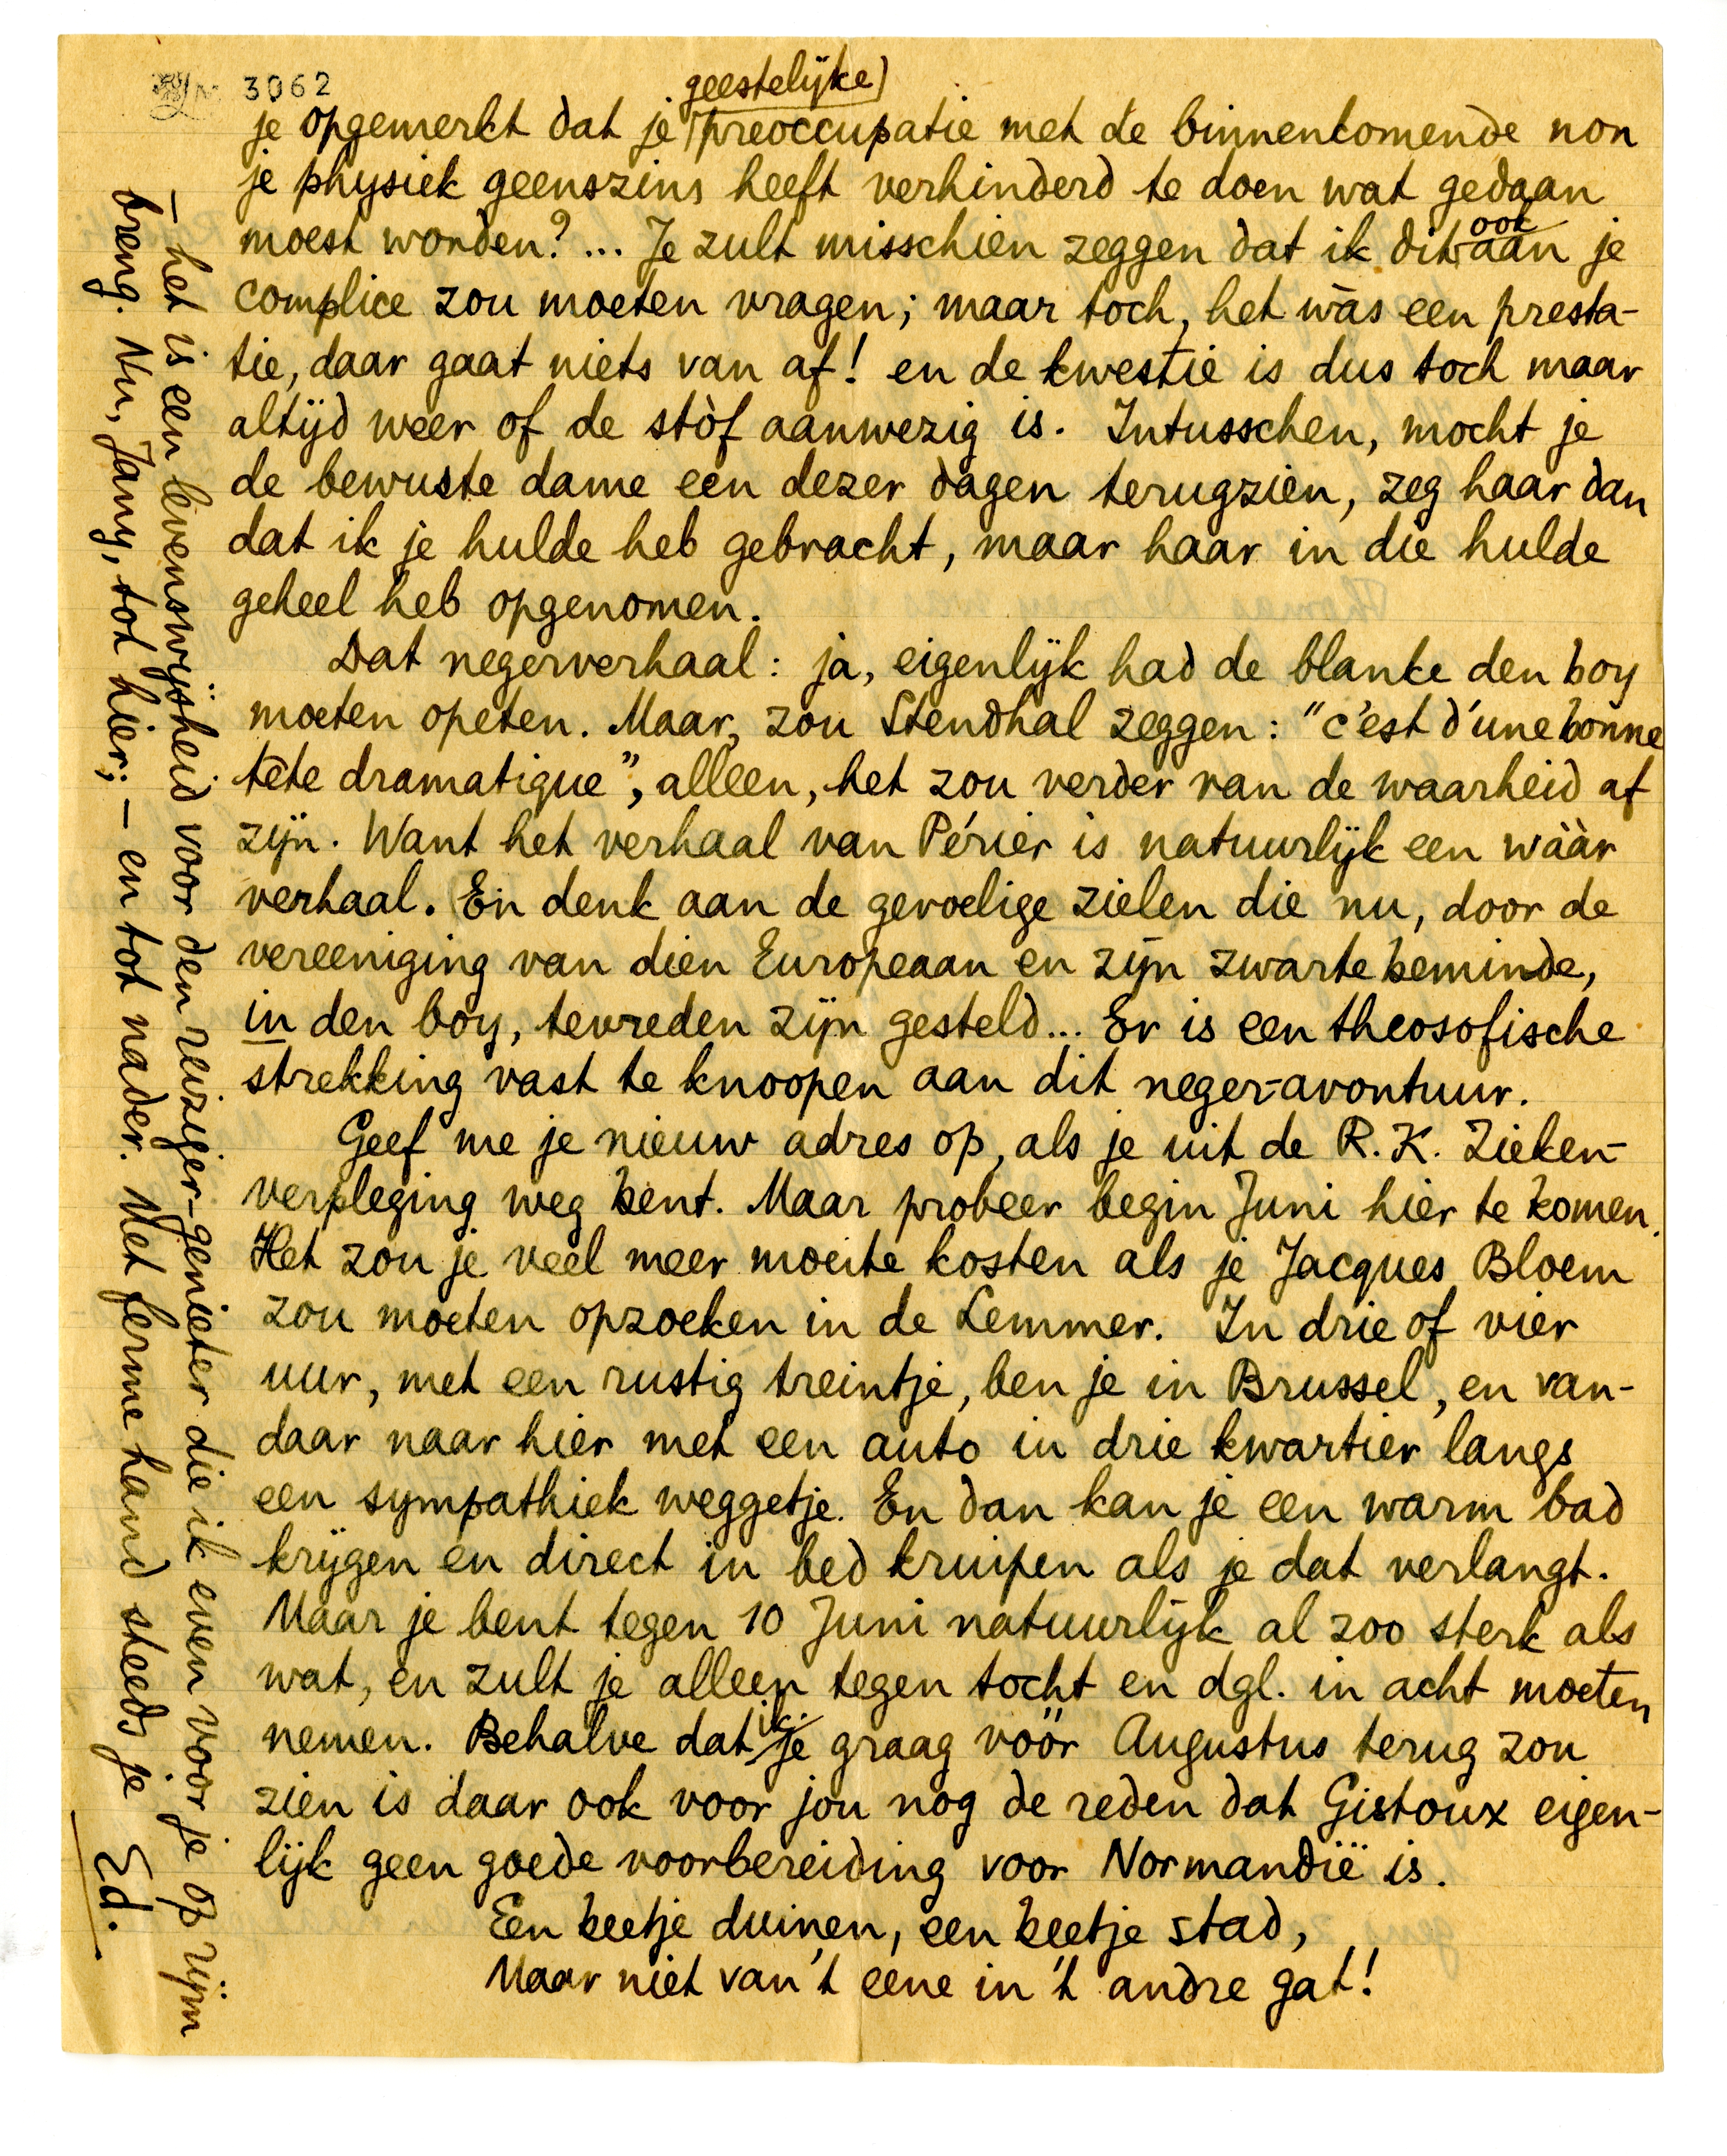 3062
geestelijke
je opgemerkt dat je preoccupatie met de binnenkomende non
je physiek geenszins heeft verhinderd te doen wat gedaan
moest worden? ... Je zult misschien zeggen dat ik dit ook aan je
complice zou moeten vragen; maar toch, het wàs een presta-
tie, daar gaat niets van af! en de kwestie is dus toch maar
altijd weer of de stòf aanwezig is. Intusschen, mocht je
de bewuste dame een dezer dagen terugzien, zeg haar dan
dat ik je hulde heb gebracht, maar haar in die hulde
geheel heb opgenomen.
Dat negerverhaal: ja, eigenlijk had de blanke den boy
moeten opeten. Maar, zou Stendhal zeggen: "c'est d'une bonne
tête dramatique", alleen, het zou verder van de waarheid af
zijn. Want het verhaal van Périer is natuurlijk een wààr
verhaal. En denk aan de gevoelige zielen die nu, door de
vereeniging van dien Europeaan en zijn zwarte beminde,
in den boy, tevreden zijn gesteld... Er is een theosofische
strekking vast te knoopen aan dit neger-avontuur.
Geef me je nieuw adres op, als je uit de R.K. Zieken-
verpleging weg bent. Maar probeer begin Juni hier te komen.
Het zou je veel meer moeite kosten als je Jacques Bloem
zou moeten opzoeken in de Lemmer. In drie of vier
uur, met een rustig treintje, ben je in Brussel, en van-
daar naar hier met een auto in drie kwartier langs
een sympathiek weggetje. En dan kan je een warm bad
krijgen en direct in bed kruipen als je dat verlangt.
Maar je bent tegen 10 Juni natuurlijk al zoo sterk als
wat, en zult je alleen tegen tocht en dgl. in acht moeten
nemen. Behalve dat ik je graag vóór Augustus terug zou
zien is daar ook voor jou nog de reden dat Gistoux eigen-
lijk geen goede voorbereiding voor Normandië is.
Een beetje duinen, een beetje stad,
Maar niet van 't eene in 't andre gat!
— het is een levenswijsheid voor den reiziger-genieter die ik even voor je op rijm
breng. Nu, Jany, tot hier; — en tot nader. Met ferme hand steeds je Ed.